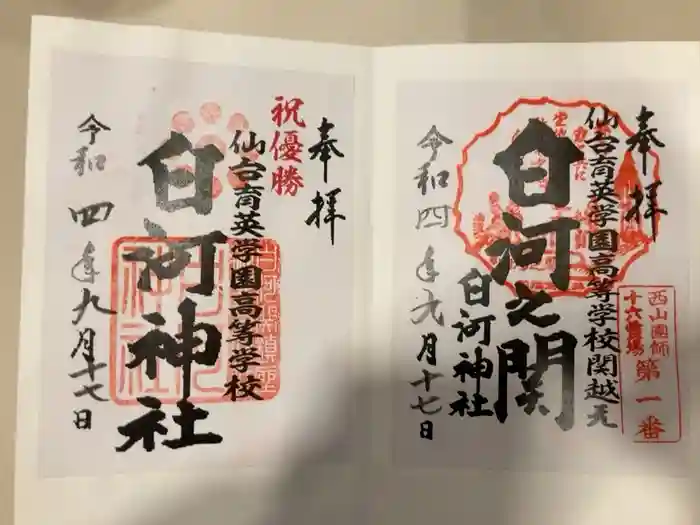 奉拝
白河之関
仙台育英学園高等学校関越え
白河神社
令和四年九月十七日
西山国師
十六霊場
第一番
奉拝
祝優勝
仙台育英学園高等学校
白河神社
令和四年九月十七日